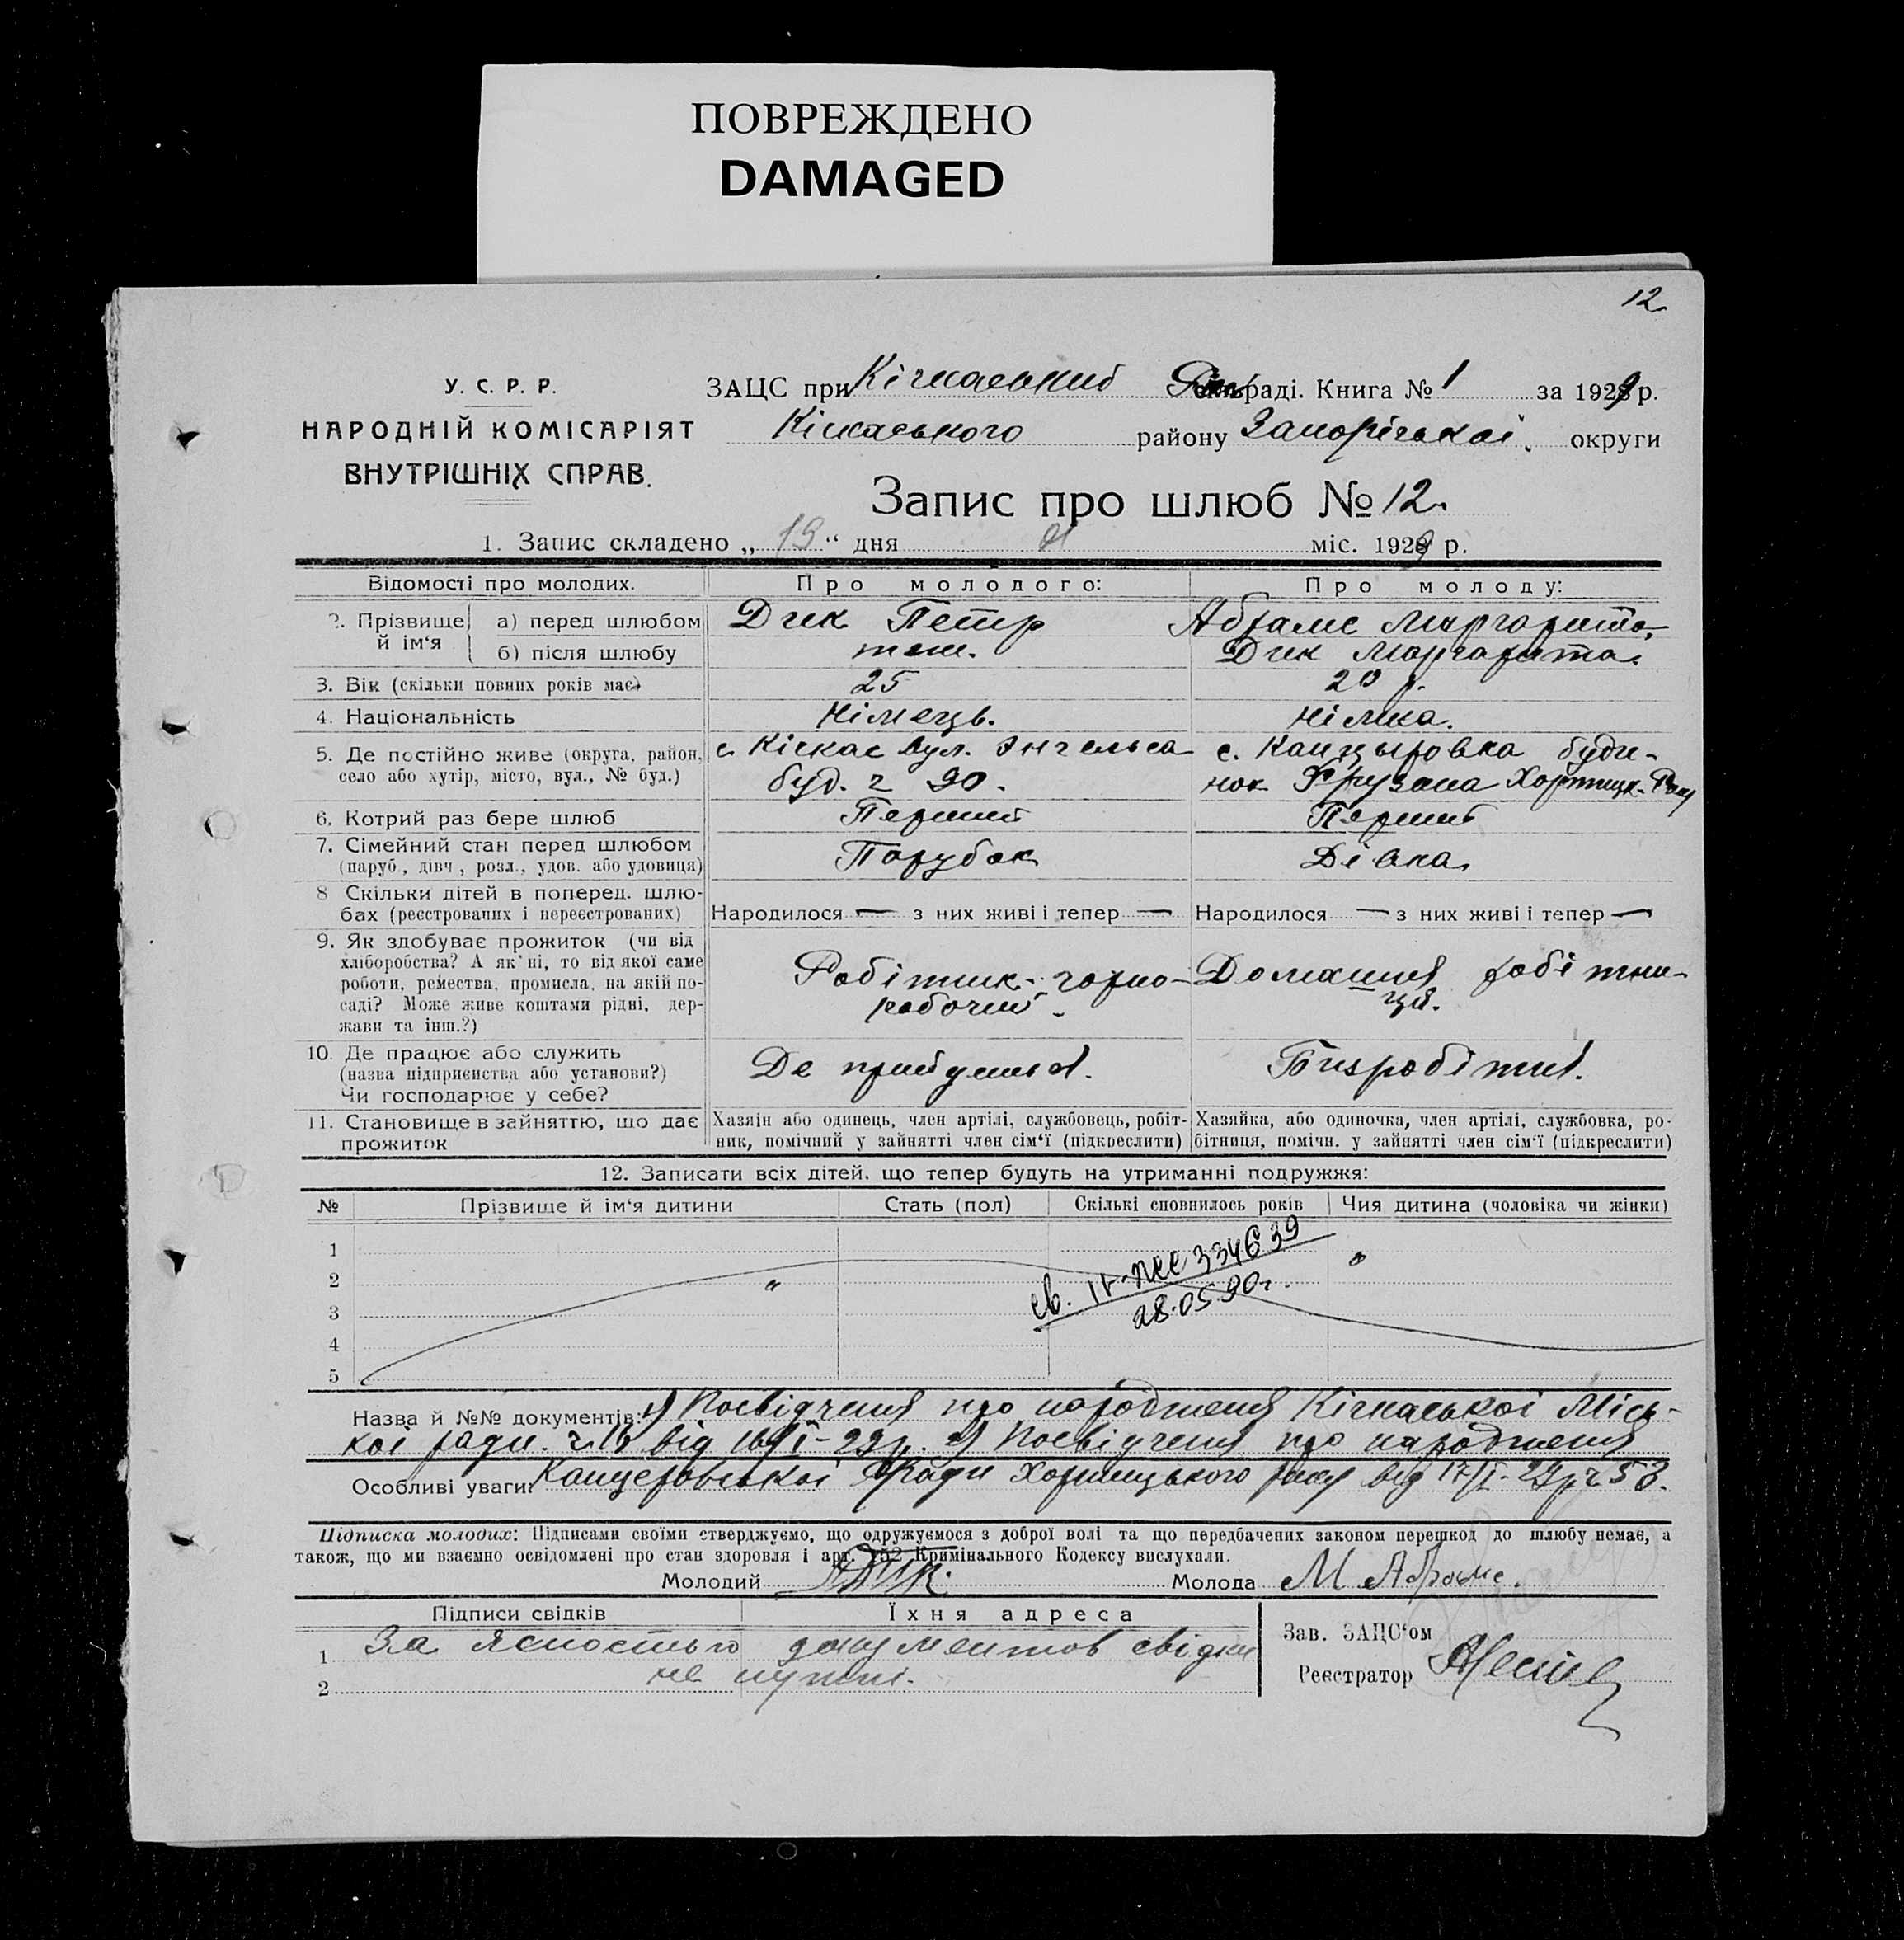 ПОВРЕЖДЕНО
DAMAGED
12
У. С. Р. Р.
НАРОДНІЙ КОМІСАРІЯТ
ВНУТРІШНІХ СПРАВ.
ЗАЦС при Кічкаський раді. Книга № 1 за 1929 р.
Кічкаського району Запоріської округи
Запис про шлюб № 12
1. Запис складено „ 19 “ дня міс. 1929 р.
Відомості про молодих. Про молодого: Про молоду:
2. Прізвище й ім‘я а) перед шлюбом Дик Петр Абрамс Маргарита
б) після шлюбу теж. Дик Маргарита
3. Вік (скільки повних років має) 25 20 р.
4. Національність Німець. Німка.
5. Де постійно живе (округа, район, с. Кічкас вул. Энгельса с. Канцыровка буди-
село або хутір, місто, вул., № буд.) буд. ч 90. нок Фрузана Хортицк-
6. Котрий раз бере шлюб Перший Перший
7. Сімейний стан перед шлюбом Парубок Дівка
(паруб., дівч., розл., удов. або удовиця)
8 Скільки дітей в поперед. шлю-
бах (реєстрованих і нереєстрованих) Народилося — з них живі і тепер — Народилося — з них живі і тепер —
9. Як здобуває прожиток (чи від
хліборобства? А як ні, то від якої саме
роботи, ремества, промисла, на якій по- Робітник-чорно- Домашня робітни-
саді? Може живе коштами рідні, дер- рабочий ця.
жави та інш.?)
10. Де працює або служить Де прийдеться. Бизробітня.
(назва підприємства або установи?)
Чи господарює у себе?
11. Становище в зайняттю, що дає Хазяін або одинець, член артілі, службовець, робіт- Хазяйка, або одиночка, член артілі, службовка, ро-
прожиток ник, помічний у зайнятті член сім‘ї (підкреслити) бітниця, помічн. у зайнятті член сім‘ї (підкреслити)
12. Записати всіх дітей, що тепер будуть на утриманні подружжя:
№ Прізвище й ім‘я дитини Стать (пол) Скількі сповнилось років Чия дитина (чоловіка чи жінки)
1
2
3
4
5
334639
28.05.90г.
Назва й №№ документів: 1) Посвідчення про народження Кічкаської Місь-
кої ради від 2) Посвідчення про народження
Особливі уваги: Канцеровської Ради Хортицького від 17/I-29р ч 53.
Підписка молодих: Підписами своїми стверджуємо, що одружуємося з доброї волі та що передбачених законом перешкод до шлюбу немає, а
також, що ми взаємно освідомлені про стан здоровля і арт. 152 Кримінального Кодексу вислухали.
Молодий Дик. Молода М Абрамс.
Підписи свідків Їхня адреса
1 За ясностью документов свідки
2 не нужні.
Зав. ЗАЦС‘ом
Реєстратор